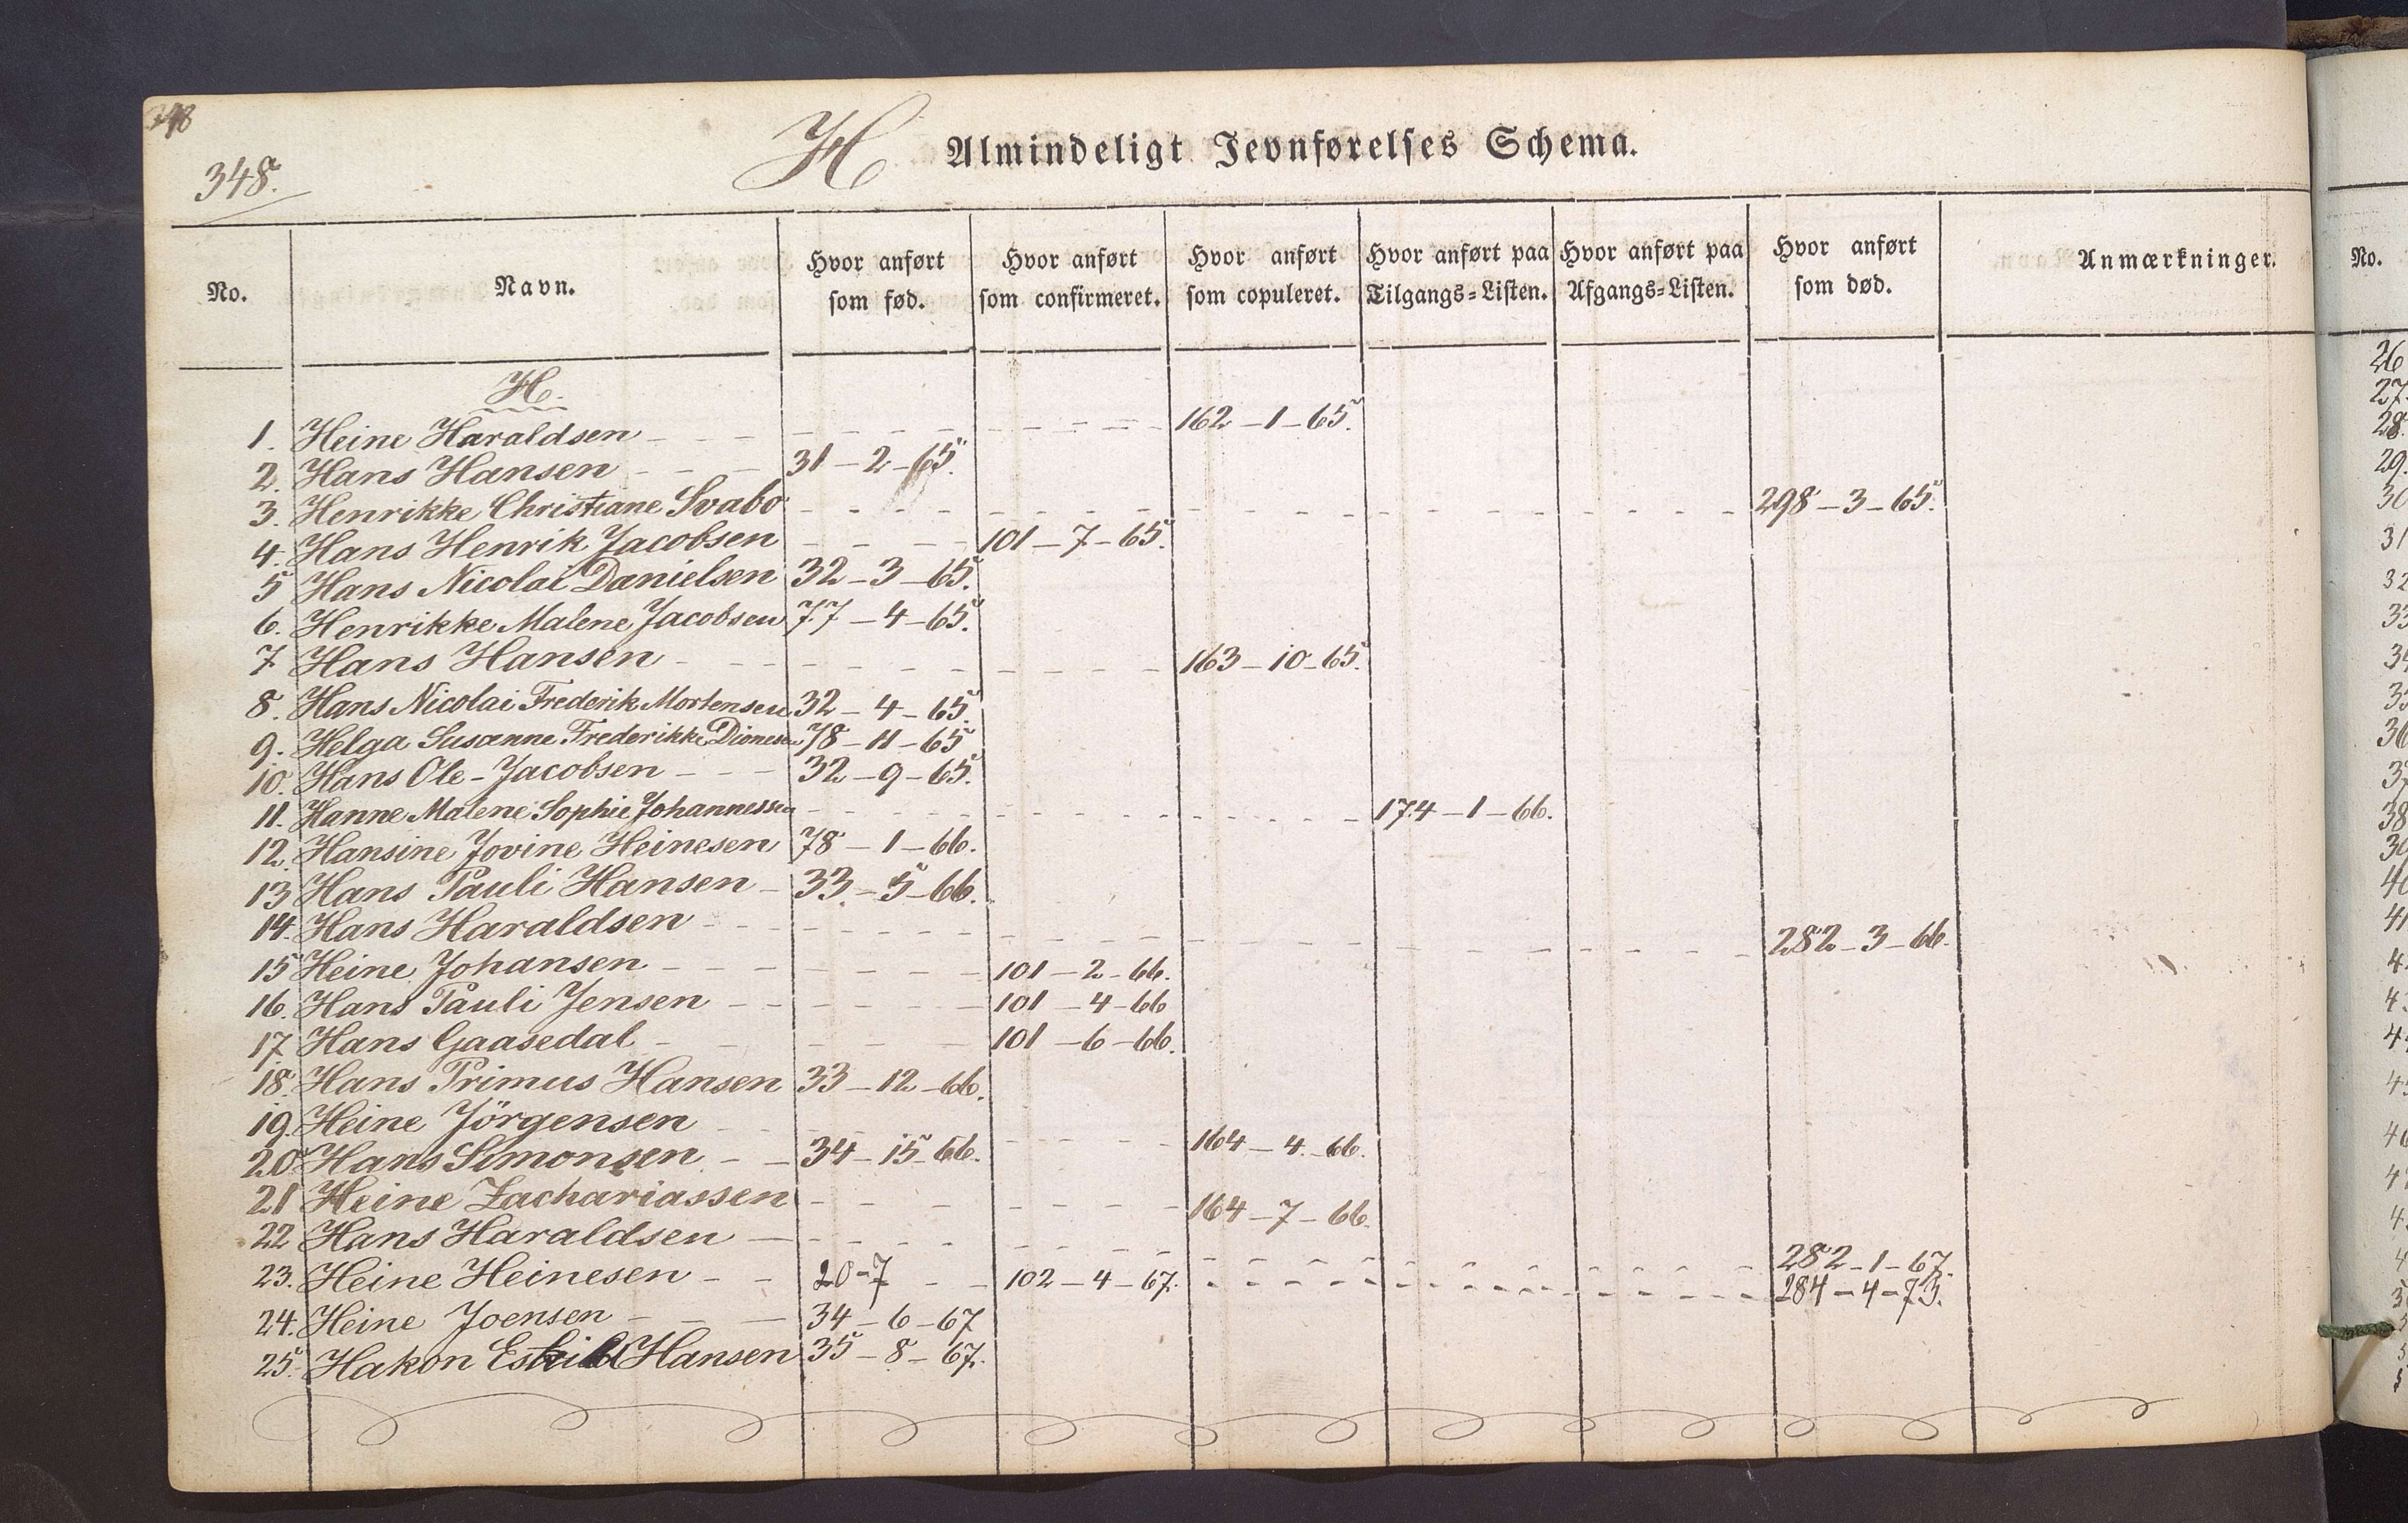 348
348.
H Almindeligt Jevnførelses Schema.
No. Navn. Hvor anført som fød. Hvor anført som confirmeret. Hvor anført som copuleret. Hvor anført paa Tilgangs=Listen. Hvor anført paa Afgangs=Listen. Hvor anført som død. Anmærkninger.
H.
1. Heine Haraldsen - - - - - - 162-1-65.
2. Hans Hansen - - - 31-2-65.
3. Henrikke Christiane Svabo - - - - - - 298-3-65.
4. Hans Henrik Jacobsen - - - - 101-7-65.
5 Hans Nicolai Danielsen 32-3-65.
6. Henrikke Malene Jacobsen 77-4-65.
7 Hans Hansen - - - - - - 163-10-65.
8. Hans Nicolai Frederik Mortensen 32-4-65.
9. Helga Susanne Frederikke Dionesen 78-11-65
10. Hans Ole-Jacobsen - - - 32-9-65.
11. Hanne Malene Sophie Johannessen - - - - - - 174-1-66.
12. Hansine Jovine Heinesen 78-1-66.
13 Hans Pauli Hansen - 33-5-66.
14. Hans Haraldsen - - - - - - 282-3-66.
15 Heine Johansen - - - - - - 101-2-66.
16. Hans Pauli Jensen - - - - - 101-4-66
17 Hans Gaasedal - - - - - 101-6-66.
18. Hans Primus Hansen 33-12-66.
19. Heine Jörgensen - - - - - - 164-4-66.
20 Hans Simonsen - - 34-15-66.
21 Heine Zachariassen - - - - - - 164-7-66
22 Hans Haraldsen - - - - - - 282-1-67.
23. Heine Heinesen - - 20-7 - - 102-4-67. - - - - - - 284-4-73.
24. Heine Joensen - - - 34-6-67
25. Hakon Eskild Hansen 35-8-67.
No.
26
27.
28.
29.
30
31
32
33
34
35
36
37
38